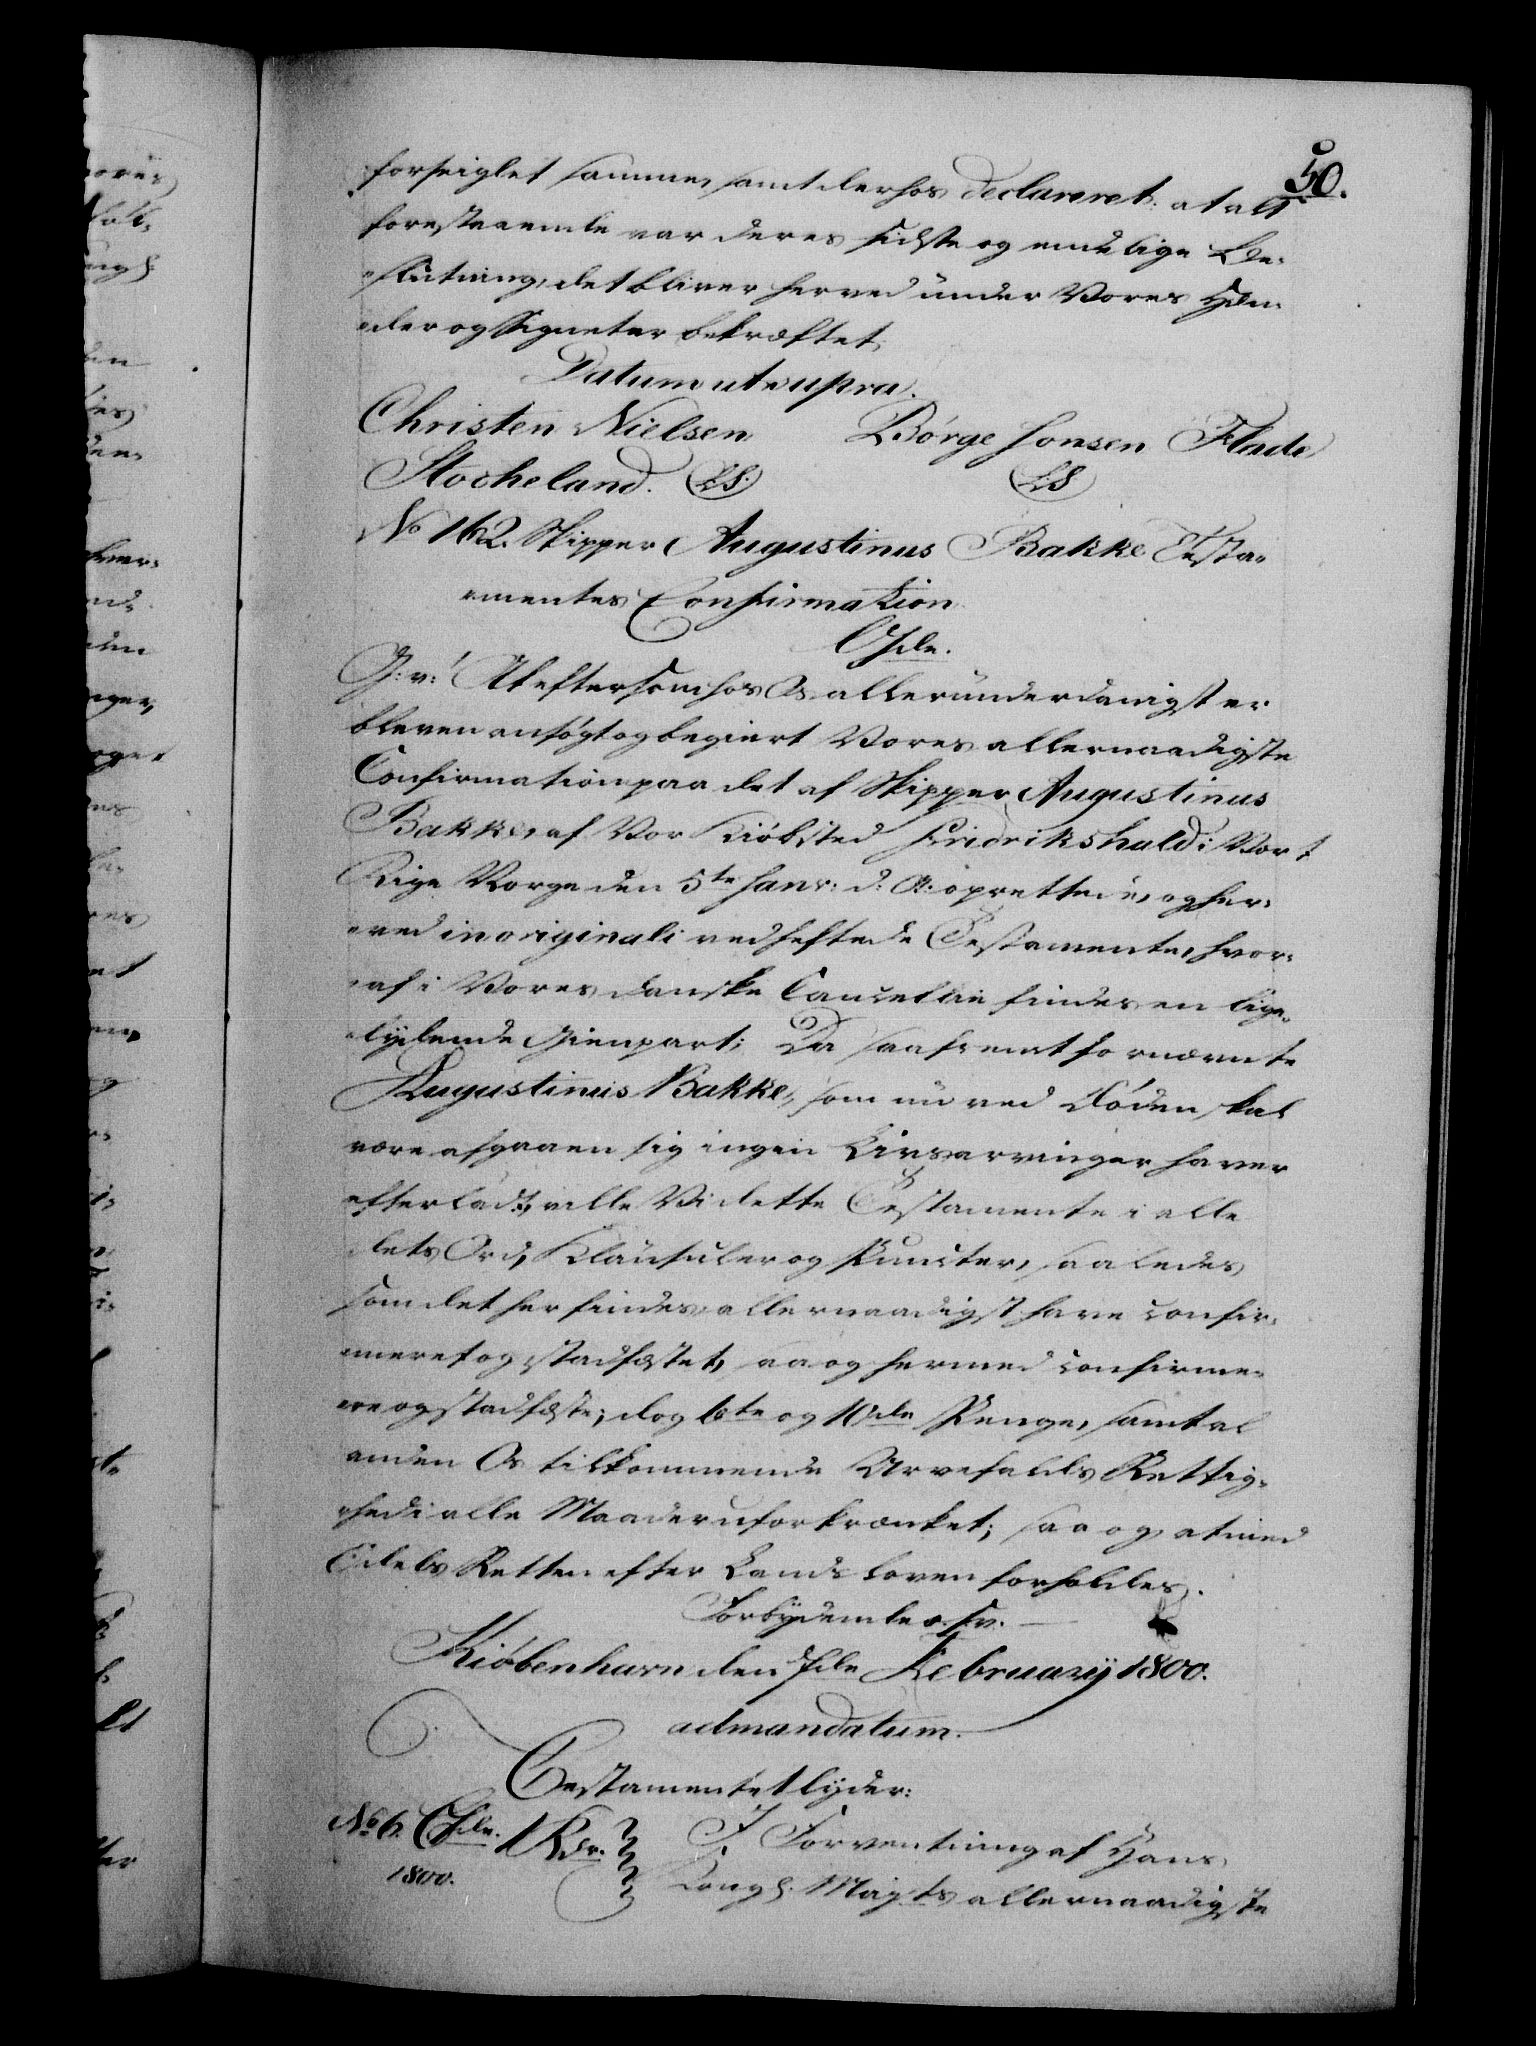 50.
forseiglet samme, samt derhos declareret: at alt
forestaaende var deres sidste og endelige Be-
slutning, det bliver herved under Vores Hæn-
der og Signeter bekræftet.
Datum ut supra.
Christen Nielsen Børge Jonsen Flade
Stocheland. (LS.) (LS)
No 162. Skipper Augustinus Bakke Testa-
mentes Confirmation.
G: v: At eftersom hos Os allerunderdanigst er
bleven ansøgt og begiert Vores allernaadigste
Confirmation paa det af Skipper Augustinus
Bakke, af Vor Kiøbsted Fridrikshald i Vort
Rige Norge den 5te Janr: d: A: oprettede, og her-
ved in originali vedheftede Testamente, hvor-
af i Vores danske Cancellie findes en lige-
lydende Gienpart; Da saafremt fornævnte
Augustinus Bakke, som nu ved Døden skal
være afgaaen sig ingen Livsarvinger haver
efterladt, ville Vi dette Testamente i alle
dets Ord, Klausuler og Puncter, saaledes
som det her findes, allernaadigst have confir-
meret og stadfæstet, saa og hermed confirme-
re og stadfæste; dog 6te og 10de Penge, samt al
anden Os tilkommende Arvefalds Rettig-
hed i alle Maader uforkrænket; saa og at med
Odels Retten efter Lands Loven forholdes.
Forbydende o. s. v.
Kiøbenhavn den 7de February 1800.
ad mandatum.
Testamentet lyder:
No 6. 1 Rdr. I Forventning af Hans
1800. Kongl. Majts allernaadigste